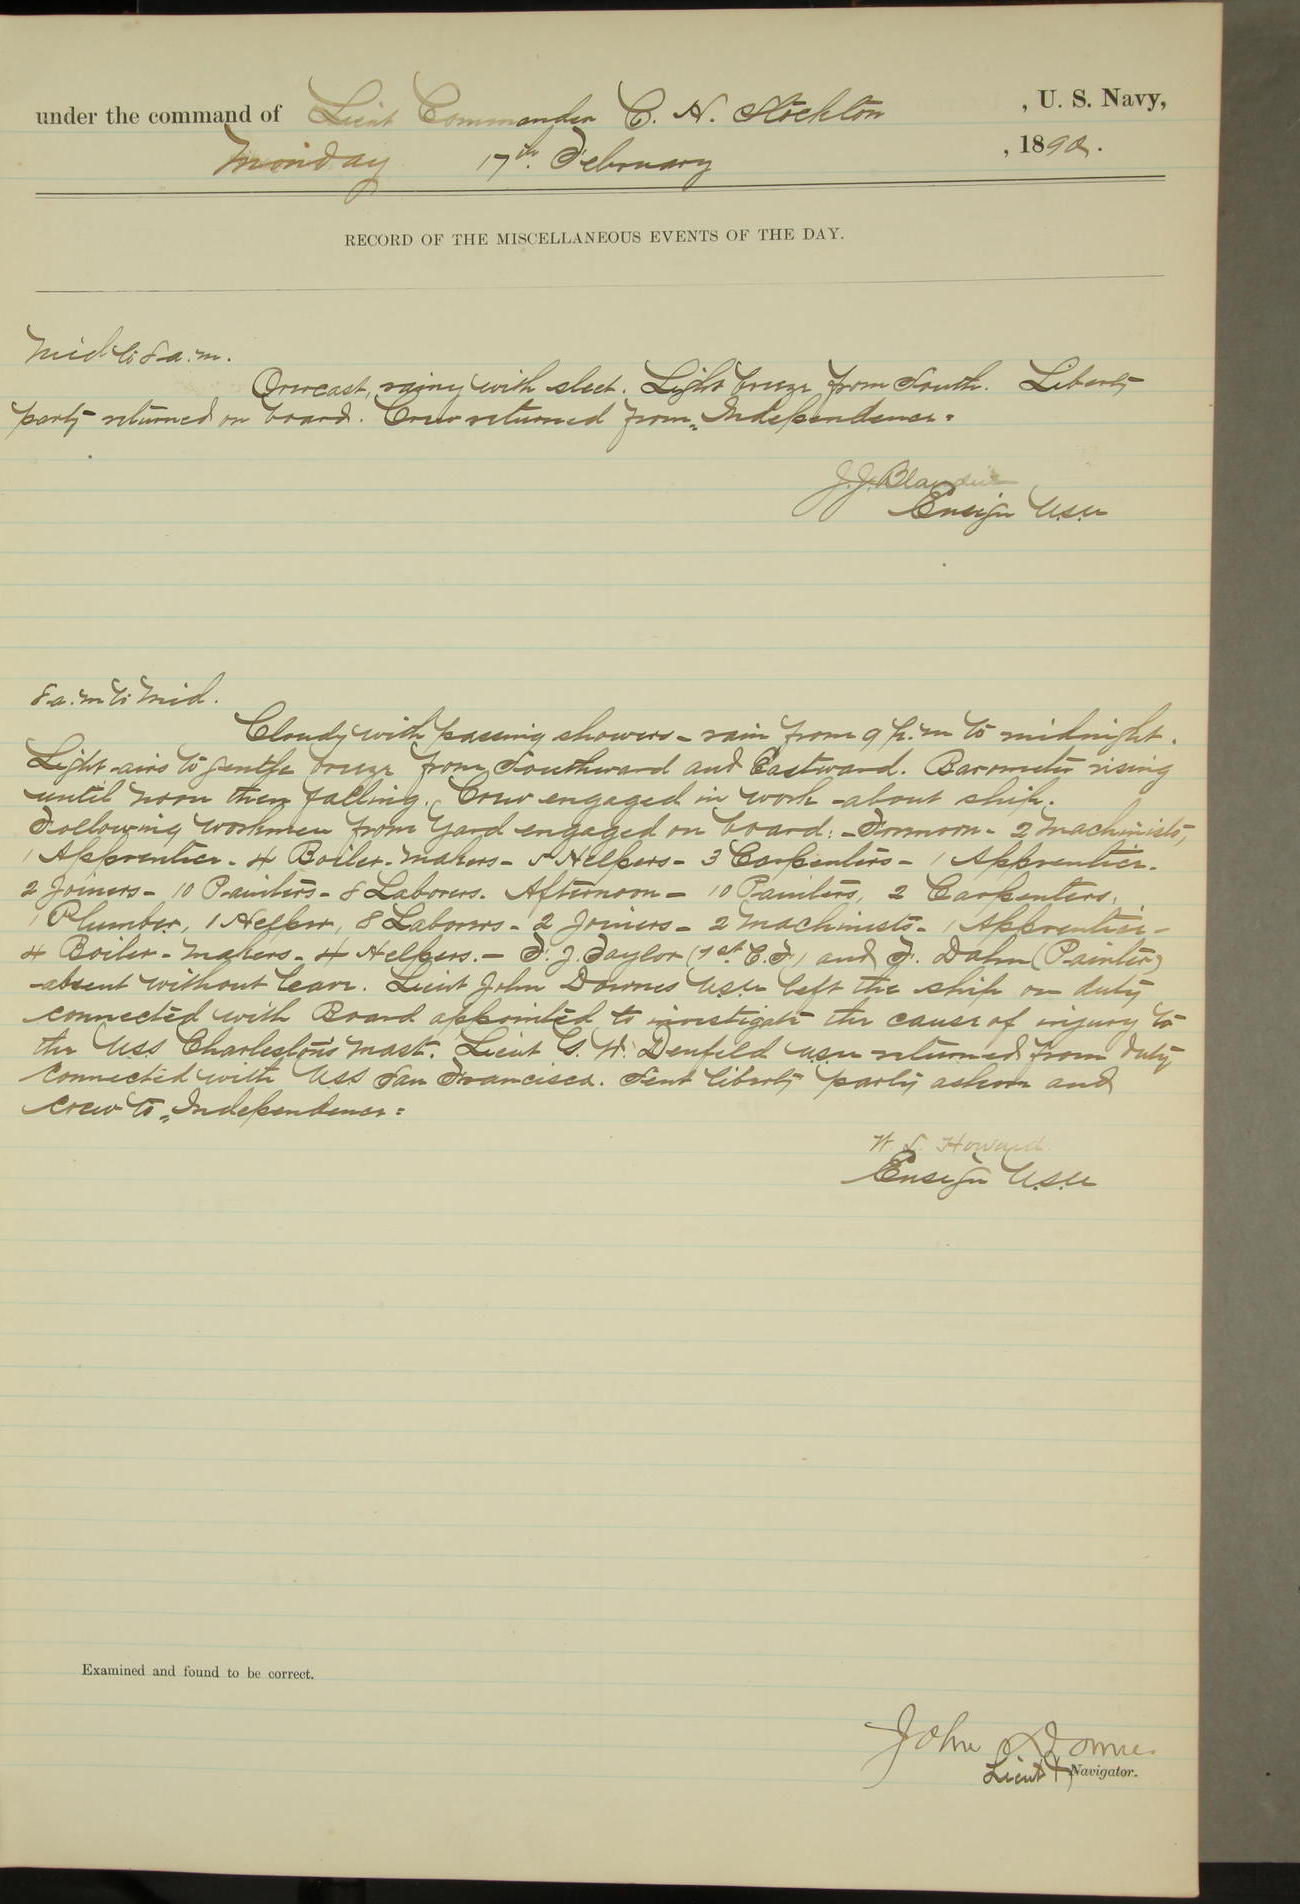 under the command of Lieut Commander C. H. Stockton , U. S. Navy,
Monday 17th February , 1890.
RECORD OF THE MISCELLANEOUS EVENTS OF THE DAY.
Mid to 8 a.m.
Overcast, rainy with sleet. Light breeze from South. Liberty
party returned on board. Crew returned from "Independence"
J. J. Blandin
Ensign U.S.N
8 a.m to Mid.
Cloudy with passing showers - rain from 9 p.m to midnight.
Light airs to gentle breeze from Southward and Eastward. Barometer rising
until noon then falling. Crew engaged in work about ship.
Following workmen from Yard engaged on board:- Forenoon - 2 Machinists,
1 Apprentice - 4 Boiler-makers - 5 Helpers - 3 Carpenters - 1 Apprentice -
2 Joiners - 10 Painters - 8 Laborers. Afternoon - 10 Painters, 2 Carpenters,
1 Plumber, 1 Helper, 8 Laborers - 2 Joiners - 2 Machinists - 1 Apprentice -
4 Boiler-makers - 4 Helpers. - F. J. Taylor (1st C.F.) and F. Dahn (Painter)
absent without leave. Lieut John Downes U.S.N left the ship on duty
connected with Board appointed to investigate the cause of injury to
the USS Charleston's mast. Lieut G. W. Denfeld U.S.N returned from duty
connected with USS San Francisco. Sent liberty party ashore and
crew to "Independence"
W. L. Howard
Ensign U.S.N
Examined and found to be correct.
John Downes
Lieut & Navigator.